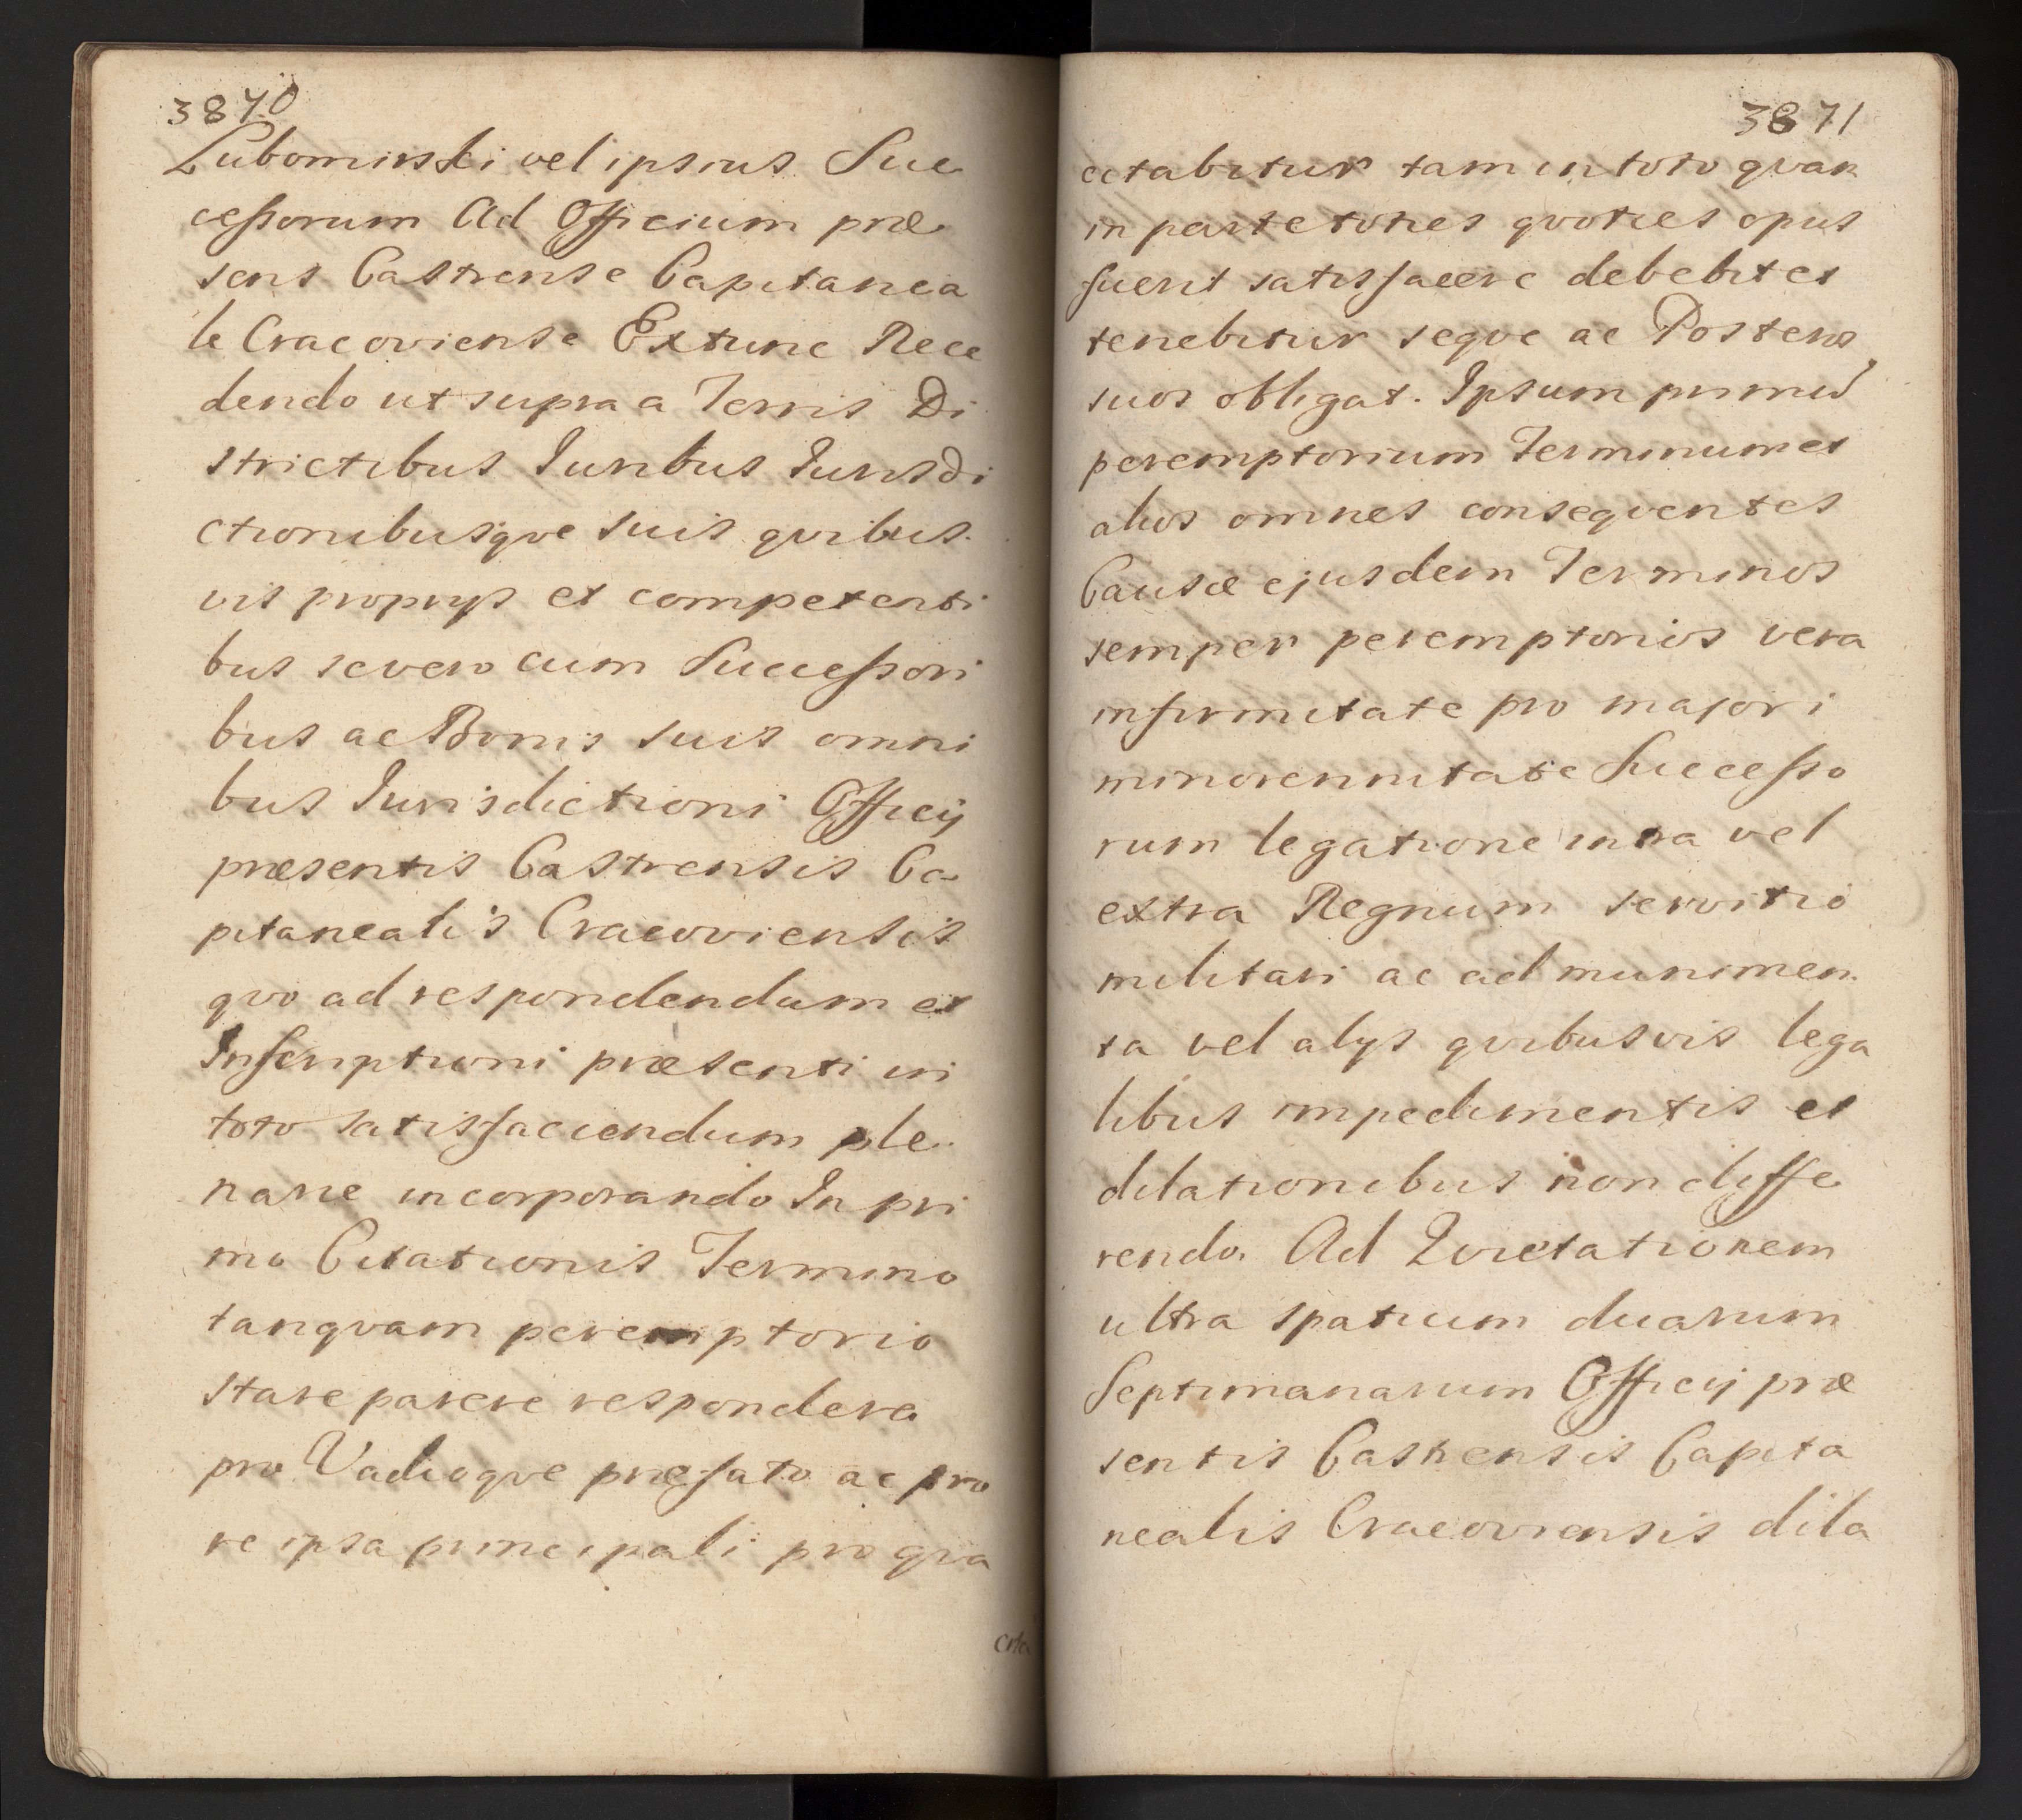 3870
Lubomirski vel ipsius Suc
cessorum Ad Officium præ
sens Castrense Capitanea
le Cracoviense Extunc Rece
dendo ut supra a Terris Di
strictibus Iuribus Iurisdi
ctionibusqve suis qvibus
vis proprys et competenti
bus se vero cum Successori
bus ac Bonis suis omni
bus Iurisdictioni Officij
præsentis Castrensis Ca
pitanealis Cracoviensis
qvo ad respondendum et
Inscriptioni præsenti in
toto satisfaciendum ple
narie incorporando In pri
mo Citationis Termino
tanqvam peremptorio
stare parere respondere
pro Vadioqve præfato ac pro
re ipsa principali pro qva
3871
ctabitur tam in toto qvam
in parte toties qvoties opus
fuerit satisfacere debebit et
tenebitur seqve ac Posteros
suos obligat. Ipsum primũ
peremptorium Terminum et
alios omnes conseqventes
Causæ ejusdem Terminos
semper peremptorios vera
infirmitate pro majori
minorennitate Successo
rum legatione intra vel
extra Regnum servitio
militari ac ad munimen
ta vel alys qvibusvis lega
libus impedimentis et
dilationibus non diffe
rendo. Ad Qvietationem
ultra spatium duarum
Septimanarum Officij præ
sentis Castrensis Capita
nealis Cracoviensis dila